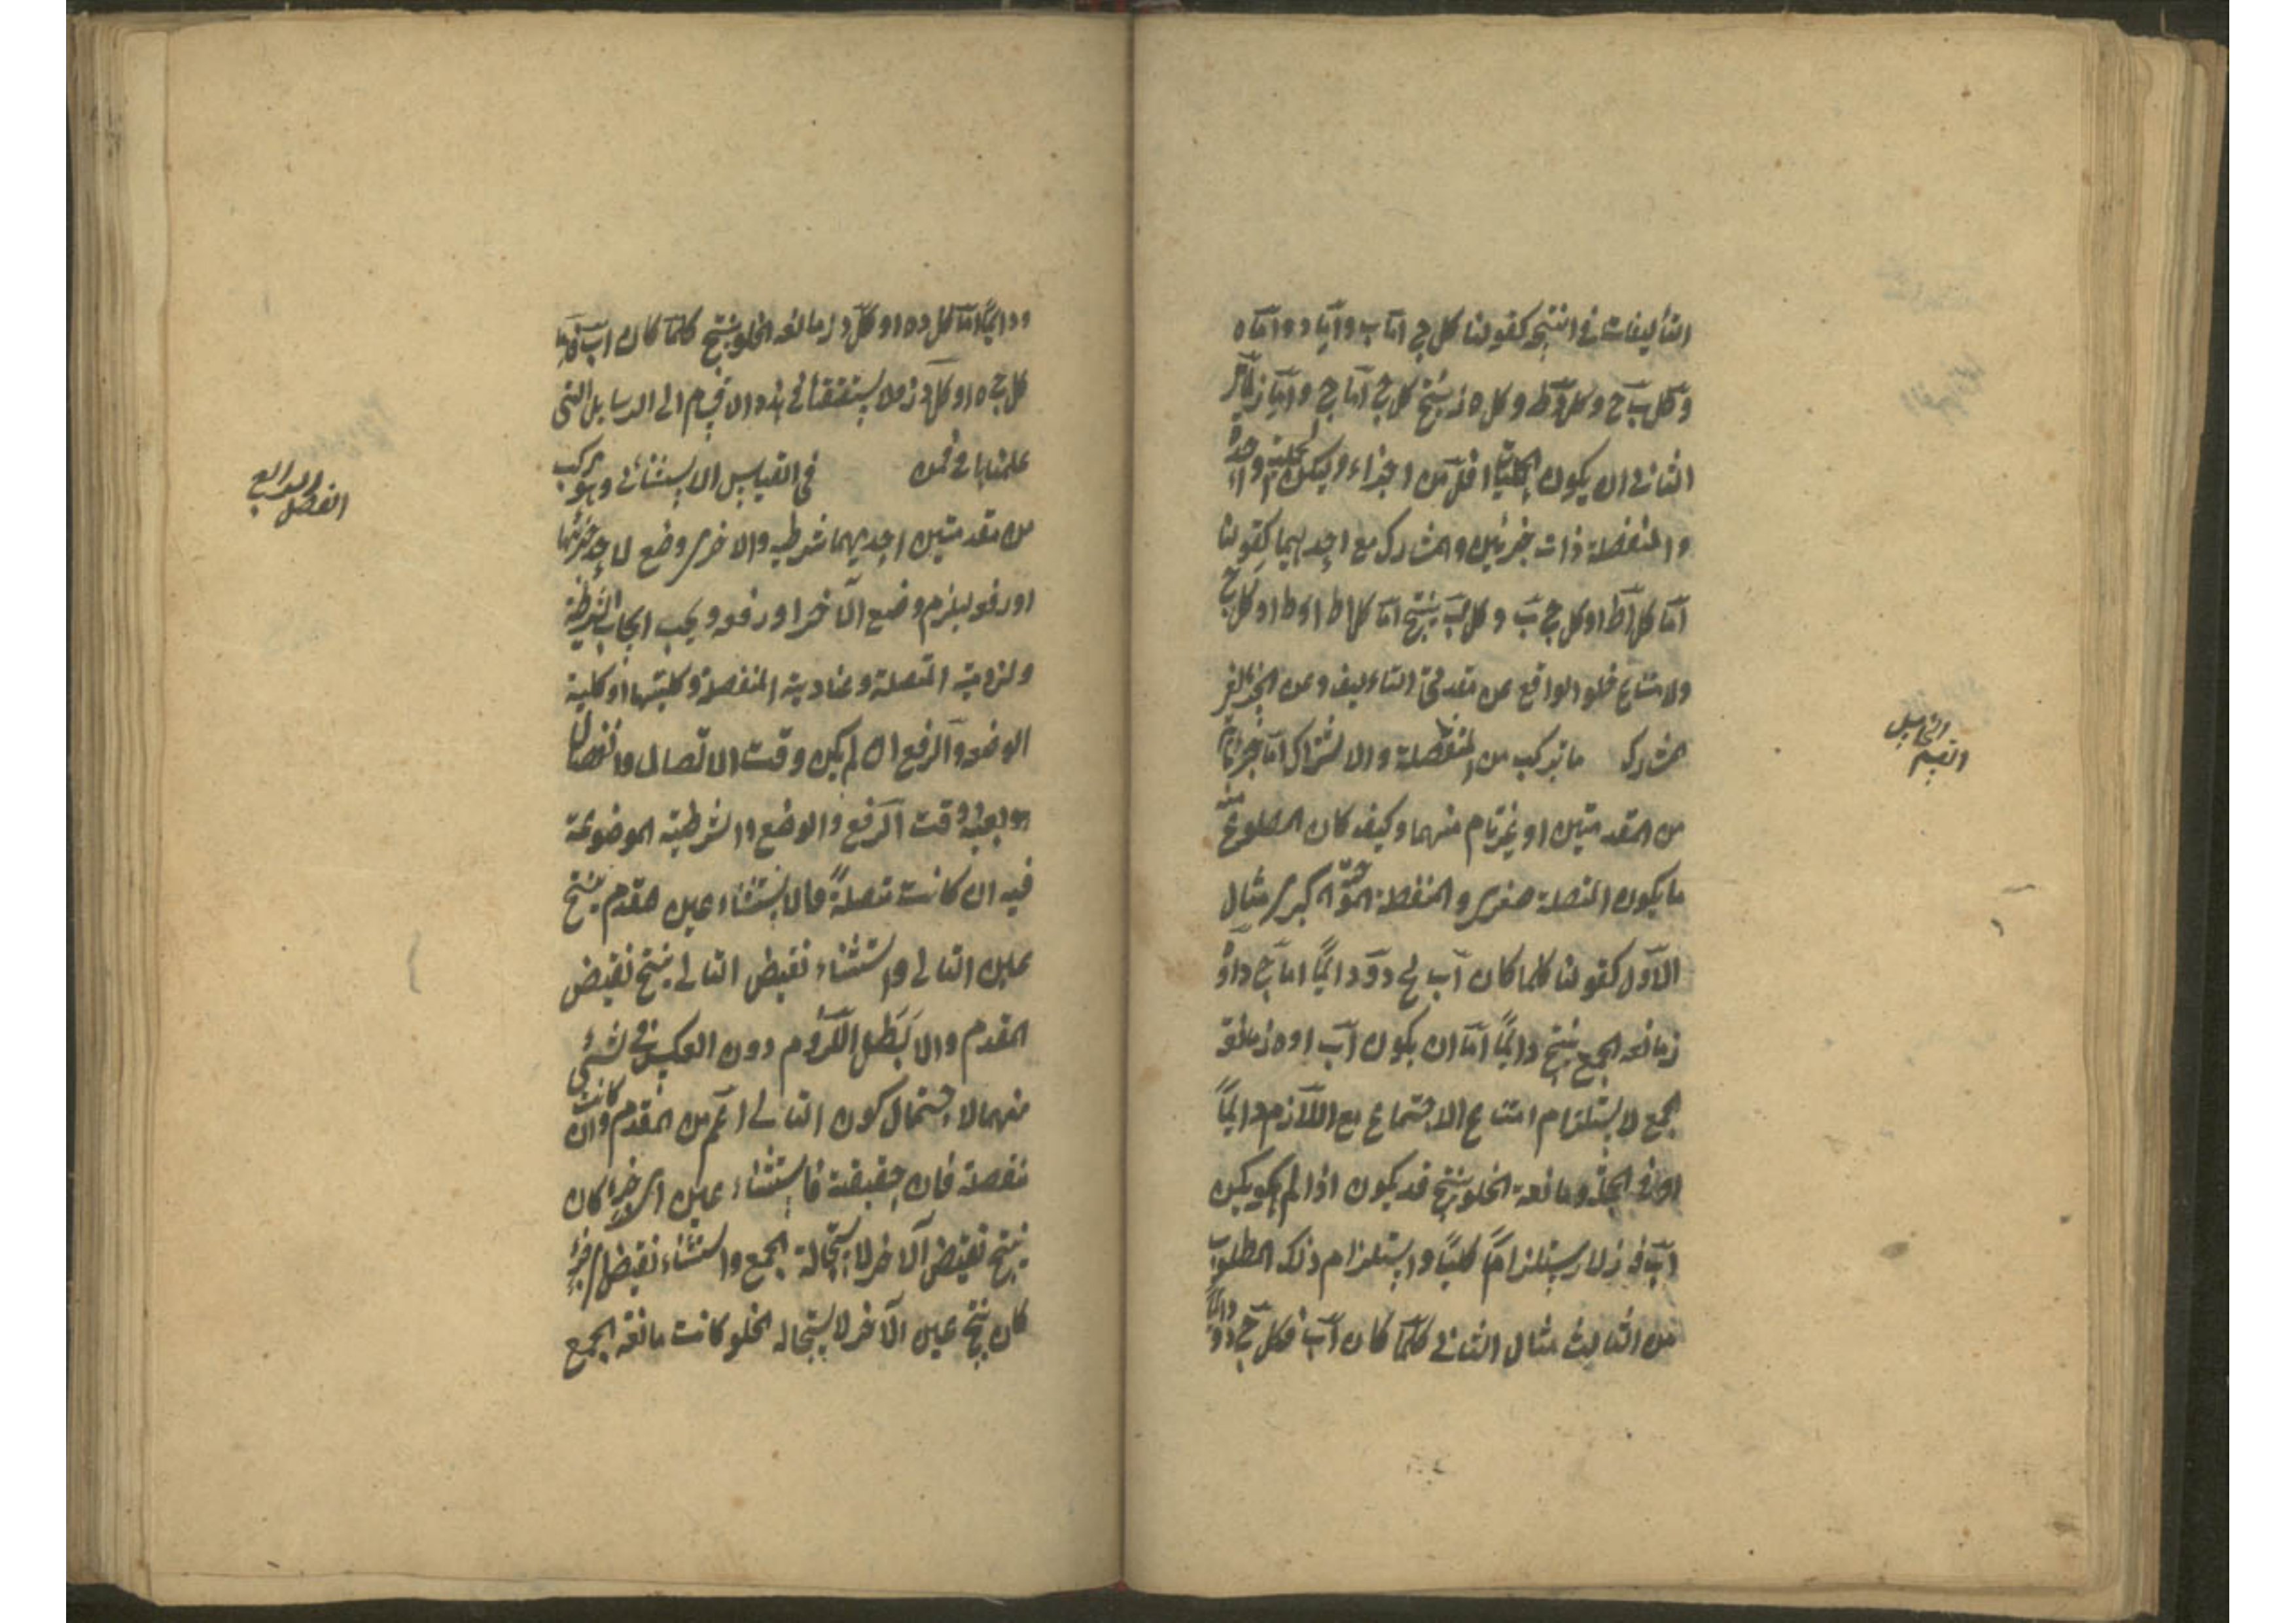 التأليفات في النتيجة كقولنا كل ج اما ب واما د واما ه
وكل ب ح وكل د ط وكل ه ز ينتج كل ج اما ح واما ز
الثاني ان يكون الحمليات اقل من اجزاء وليكن الحملية واحدة
والمنفصلة ذات جزئين والمشارك مع احديهما كقولنا
اما كل ا ط او كل ج ب وكل ب ينتج اما كل ا ط او كل ج
ولامتناع خلو الواقع عن مقدمتي التاليف وعن الجزء الغير
المشارك ما يتركب من المتصلة والمنفصلة والاشتراك اما في جزء تام
من المقدمتين او غير تام منهما وكيف كان المطبوع منه
ما يكون المتصلة صغرى والمنفصلة الموجبة الكبرى مثال
الاول كقولنا كلما كان اب فج د ودائما اما ج د او ه
ز مانعه الجمع ينتج دائما اما ان يكون اب او ه ز مانعة
الجمع لاستلزام امتناع الاجتماع مع اللازم دائما
او في الجملة ومانعة الخلو ينتج قد يكون اذا لم يكن
اب فه ز لاستلزام كليا واستلزام ذلك المطلوب
من الثالث مثال الثاني كلما كان اب فكل ج د ودائما
القسم الخامس
ودائما اما كل د ه او كل د ز مانعه الخلو ينتج كلما كان اب فاما
كل ج ه او كل د ز والاستقصاء في هذه الاقسام الى الرسايل التي
علمناها في الفن في القياس الاستثنائي وهو مركب
من مقدمتين احديهما شرطيه والاخرى وضع لاحد جزئيها
او رفعه ليلزم وضع الآخر او رفعه ويجب ايجاب الشرطية
ولزومية المتصلة وعنادية المنفصلة وكليتها او كلية
الوضع والرفع ان لم يكن وقت الاتصال والانفصال
هو بعينه وقت الرفع والوضع والشرطية الموضوعة
فيه ان كانت متصلة فالاستثناء عين المقدم ينتج
عين التالي واستثناء نقيض التالي ينتج نقيض
المقدم والا لبطل اللزوم دون العكس في شئ
منهما لاحتمال كون التالي اعم من المقدم وان كانت
منفصلة فان حقيقية فاستثناء عين اي جزء كان
ينتج نقيض الآخر لاستحالة الجمع واستثناء نقيض اي جزء
كان ينتج عين الآخر لاستحاله الخلو كانت مانعة الجمع
الفصل الرابع